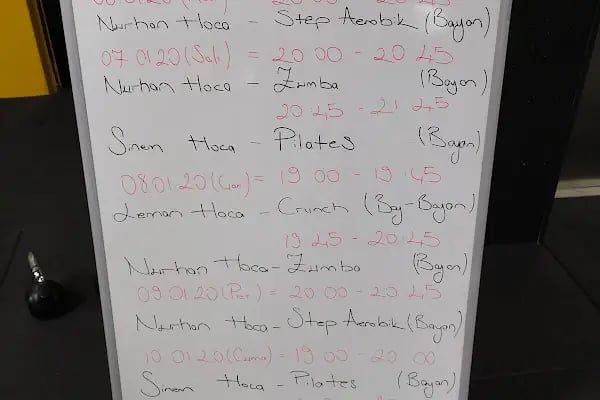 Nurhan Hoca - Step Aerobik (Bayan)
07 01 20 (Salı) = 20 00 - 20 45
Nurhan Hoca - Zumba (Bayan)
20:45 - 21 45
Sinem Hoca - Pilates (Bayan)
08.01.20 (Çar) = 19 00 - 19:45
Leman Hoca - Crunch (Bay-Bayan)
19 45 - 20:45
Nurhan Hoca - Zumba (Bayan)
09.01.20 (Per) = 20 00 - 20 45
Nurhan Hoca - Step Aerobik (Bayan)
10 01.20 (Cuma) = 19 00 - 20 00
Sinem Hoca - Pilates (Bayan)